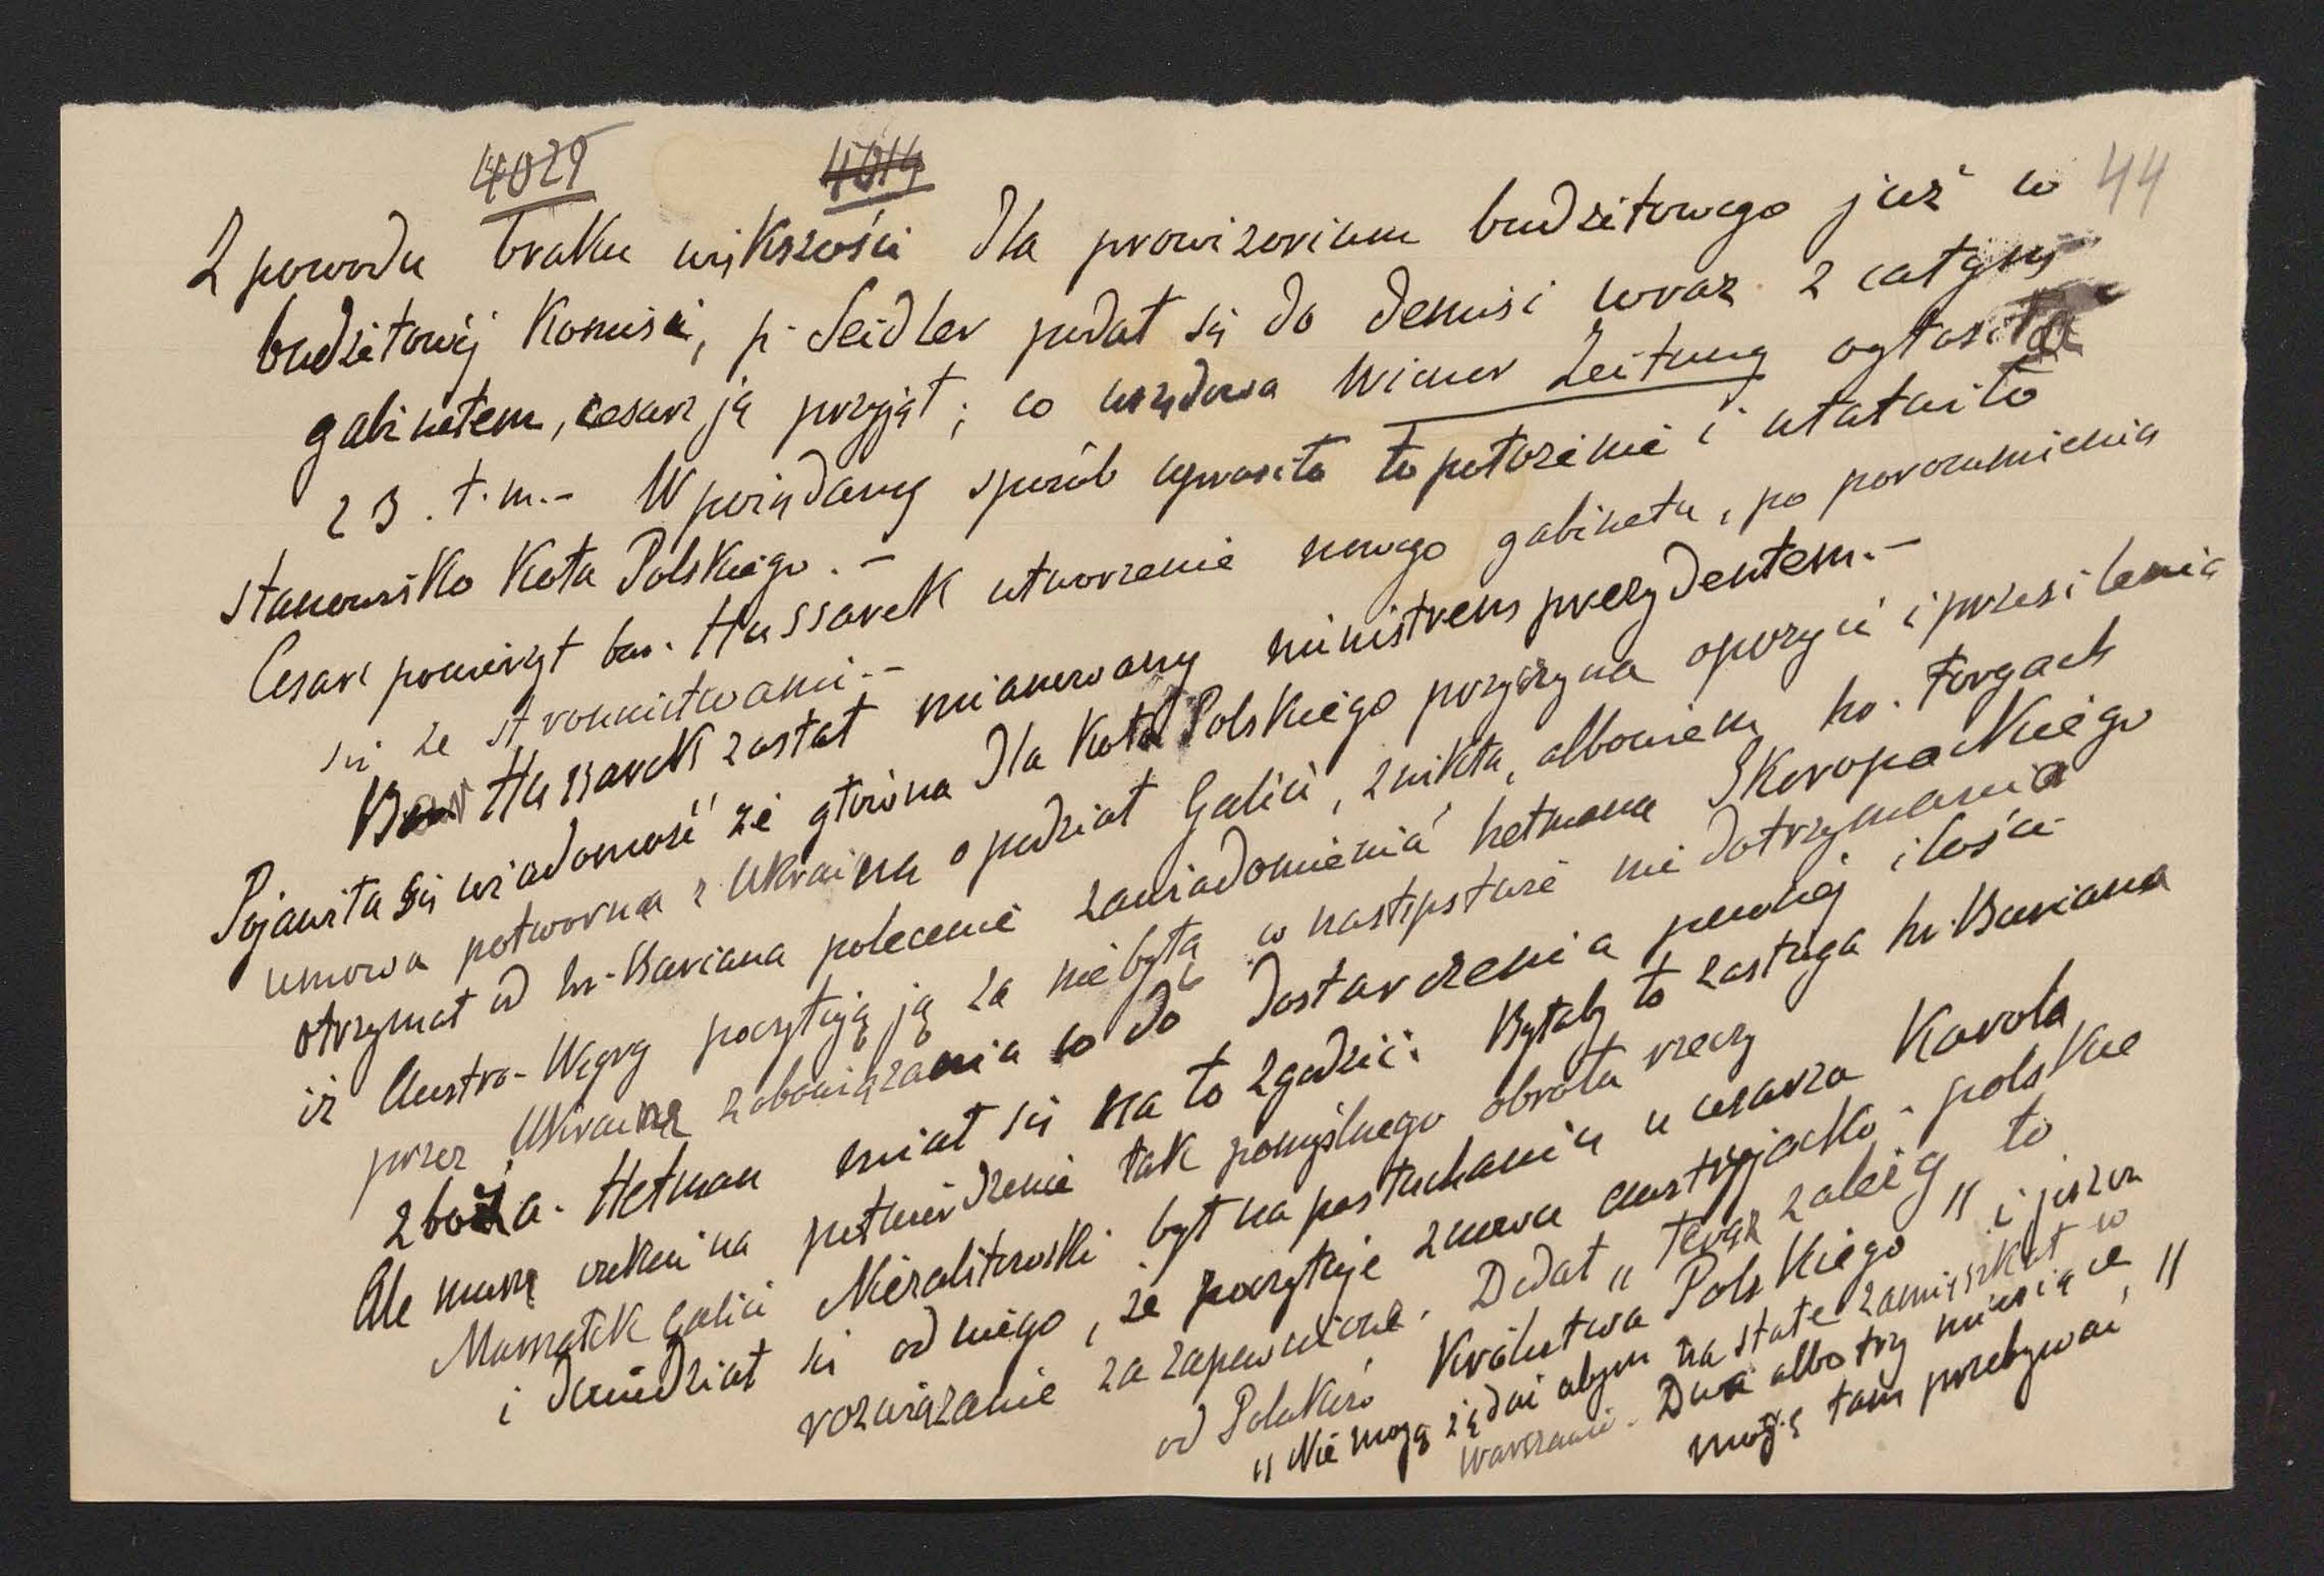 4029 4014
44
Z powodu braku większości dla prowizorium budżetowego już w
budżetowéj Komisii, p. Seidler podał się do demisi wraz z całym
gabinetem, cesarz ją przyjął; co urzędowa Wiener Zeitung ogłosiła
23. t.m.- W pożądany sposób uprości to położenie i ułatwi to
stanowisko Koła Polskiego.-
Cesarz powierzył bar. Hussarek utworzenie nowego gabinetu, po porozumienia
się ze stronnictwami.-
Bar Hussarek został mianowany ministrem prezydentem.-
Pojawiła się wiadomość że główna dla Koła Polskiego przyczyna opozycii i przesilenia
umowa potworna z Ukraina o podział Galicii, znikła, albowiem hr. Forgach
otrzymał od hr. Buriana polecenie zawiadomienia hetmana Skoropackiego
iż Austro-Węgry poczytują ją za niebyłą w następstwie nie dotrzymania
przez Ukrainę zobowiązania co do dostarczenia pewnéj ilości
zboża. Hetman miał się na to zgodzić. Byłaby to zasługa hr. Buriana
Ale muszę czekać na potwierdzenie tak pomyślnego obrotu rzeczy
Marszałek Galicii Niezabitowski był na posłuchaniu u cesarza Karola
i dowiedział się od niego, że poczytuje znowu austryjacko-polskie
rozwiązanie za zapewnione. Dodał „ teraz zależy to
od Polaków, Królestwa Polskiego " i jeszcze
„ Nie mogą żądać abym na stałe zamieszkał w
Warszawie. Dwa albo trzy miesiące
mogę tam przebywać, "